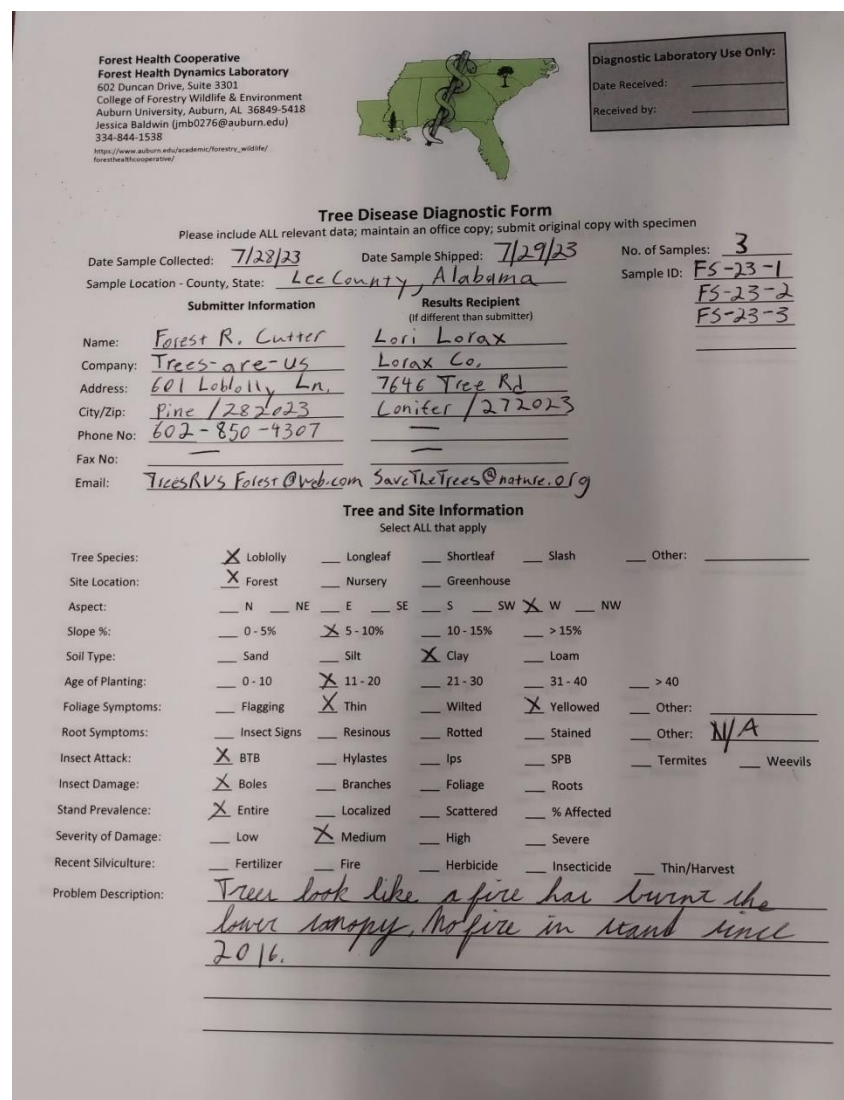 Forest Health Cooperative
Forest Health Dynamics Laboratory
602 Duncan Drive, Suite 3301
College of Forestry Wildlife & Environment
Auburn University, Auburn, AL 36849-5418
Jessica Baldwin (jmb0276@auburn.edu)
334-844-1538
https://www.auburn.edu/academic/forestry_wildlife/
foresthealthcooperative/
Diagnostic Laboratory Use Only:
Date Received:
Received by:
Tree Disease Diagnostic Form
Please include ALL relevant data; maintain an office copy; submit original copy with specimen
Date Sample Collected: 7/28/23 Date Sample Shipped: 7/29/23 No. of Samples: 3
Sample Location - County, State: Lee County, Alabama Sample ID: FS-23-1
FS-23-2
FS-23-3
Submitter Information Results Recipient
(If different than submitter)
Name: Forest R. Cutter Lori Lorax
Company: Trees-are-us Lorax Co.
Address: 601 Loblolly Ln. 7646 Tree Rd
City/Zip: Pine /282023 Conifer /272023
Phone No: 602-850-4307 —
Fax No: — —
Email: TreesRUS Forest@web.com SaveTheTrees@nature.org
Tree and Site Information
Select ALL that apply
Tree Species: X Loblolly Longleaf Shortleaf Slash Other:
Site Location: X Forest Nursery Greenhouse
Aspect: N NE E SE S SW X W NW
Slope %: 0 - 5% X 5 - 10% 10 - 15% > 15%
Soil Type: Sand Silt X Clay Loam
Age of Planting: 0 - 10 X 11 - 20 21 - 30 31 - 40 > 40
Foliage Symptoms: Flagging X Thin Wilted X Yellowed Other:
Root Symptoms: Insect Signs Resinous Rotted Stained Other: N/A
Insect Attack: X BTB Hylastes Ips SPB Termites Weevils
Insect Damage: X Boles Branches Foliage Roots
Stand Prevalence: X Entire Localized Scattered % Affected
Severity of Damage: Low X Medium High Severe
Recent Silviculture: Fertilizer Fire Herbicide Insecticide Thin/Harvest
Problem Description: Trees look like a fire has burnt the
lower canopy. No fire in stand since
2016.